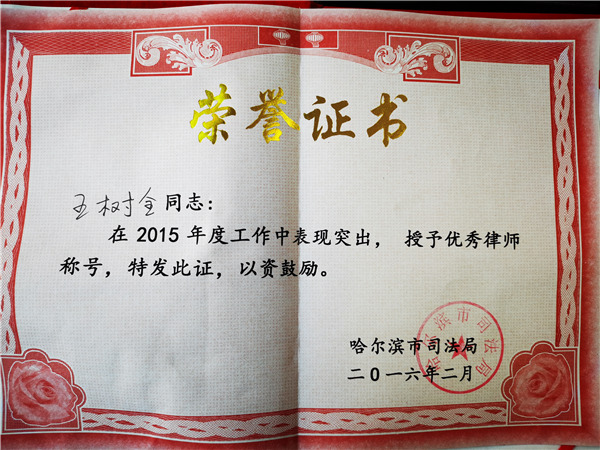 荣誉证书
王树全同志：
在 2015 年度工作中表现突出， 授予优秀律师
称号，特发此证，以资鼓励。
哈尔滨市司法局
二0一六年二月
哈尔滨市司法局